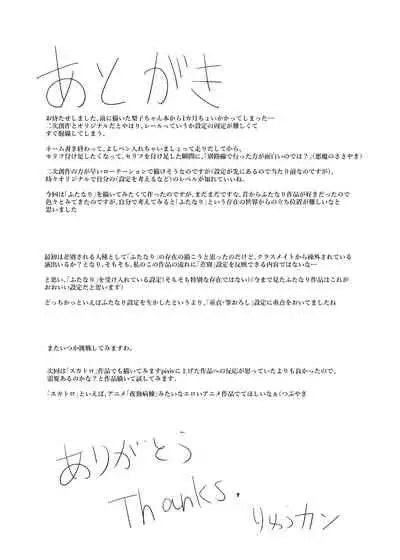 あとがき
お待たせしました。前に描いた梨子ちゃん本から1か月ちょいかかってしまった…
二次創作とオリジナルだとやはり、レールっていうか設定の固定が難しくて
すぐ脱線してしまう。
ネーム書き終わって、よしペン入れちゃいましょって走りだしてから、
セリフ付け足したくなって、セリフを付け足した瞬間に、「別路線で行った方が面白いのでは？」(悪魔のささやき)
二次創作の方が早いローテーションで描けそうなのですが(設定が先にあるので当たり前なのですが)、
時々オリジナルで自分の(設定を考えるなど)のレベルが知れていいね。
今回は「ふたなり」を描いてみたくて作ったのですが、まだまだですな、昔からふたなり作品が好きだったので
色々とみてきたのですが、自分で考えてみると「ふたなり」という存在の世界からの立ち位置が難しいなと
思いました
最初は差別される人種として「ふたなり」の存在の描こうと思ったのだけど、クラスメイトから疎外されている
演出いるか？となり、そもそも、私のこの作品の流れに「差別」設定を反映できる内容ではないな…
と思い、「ふたなり」を受け入れている設定(そもそも特別な存在ではない)(今まで見たふたなり作品はこれが
おおい設定だと思います)
どっちかっといえばふたなり設定を生かしたというより、「童貞・筆おろし」設定に重点をおいてましたね
またいつか挑戦してみますわ。
次回は「スカトロ」作品でも描いてみますpixivに上げた作品への反応が思っていたよりも良かったので、
需要あるのかな？と作品描いて試してみます。
「スカトロ」といえば、アニメ「夜勤病棟」みたいなエロいアニメ作品でてほしいなぁ(つぶやき
ありがとう
Thanks.
りゅうカン